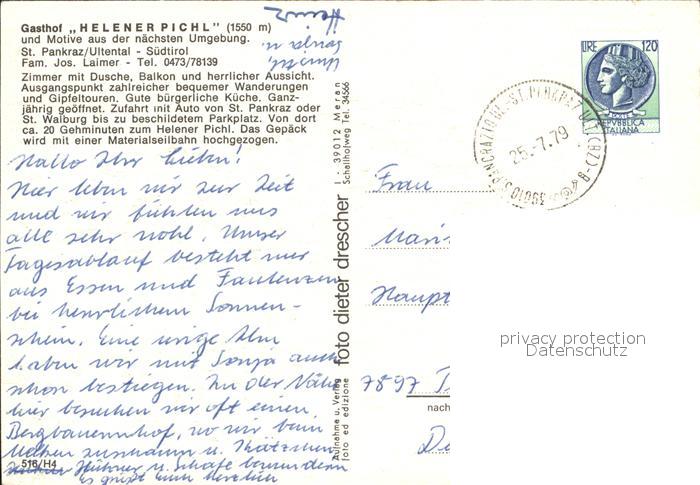 Gasthof „HELENER PICHL" (1550 m)
und Motive aus der nächsten Umgebung.
St. Pankraz/Ultental - Südtirol
Fam. Jos. Laimer - Tel. 0473/78139
Zimmer mit Dusche, Balkon und herrlicher Aussicht.
Ausgangspunkt zahlreicher bequemer Wanderungen
und Gipfeltouren. Gute bürgerliche Küche. Ganz-
jährig geöffnet. Zufahrt mit Auto von St. Pankraz oder
St. Walburg bis zu beschildetem Parkplatz. Von dort
ca. 20 Gehminuten zum Helener Pichl. Das Gepäck
wird mit einer Materialseilbahn hochgezogen.
Hallo Ihr Lieben!
Hier leben wir zur Zeit
und wir fühlen uns
alle sehr wohl. Unser
Tagesablauf besteht nur
aus Essen und Faulenzen
bei herrlichem Sonnen-
schein. Eine urige Alm
haben wir mit Sonja auch
schon bestiegen. In der Nähe
hier besuchen wir oft einen
Bergbauernhof, wo wir beim
Melken zuschauen u. Kätzchen
Hühner u. Schafe bewundern
Es grüßt Euch herzlich
Sonja u.
Heinz
516/H4
foto dieter drescher
I - 39012 Meran
Schallhofweg Tel. 34566
Aufnahme u. Verlag
foto ed edizione
LIRE 120
REPVBBLICA
ITALIANA
39010 S. PANCRAZIO
25.-7.79
Frau
Haupt
7897
nach
privacy protection
Datenschutz